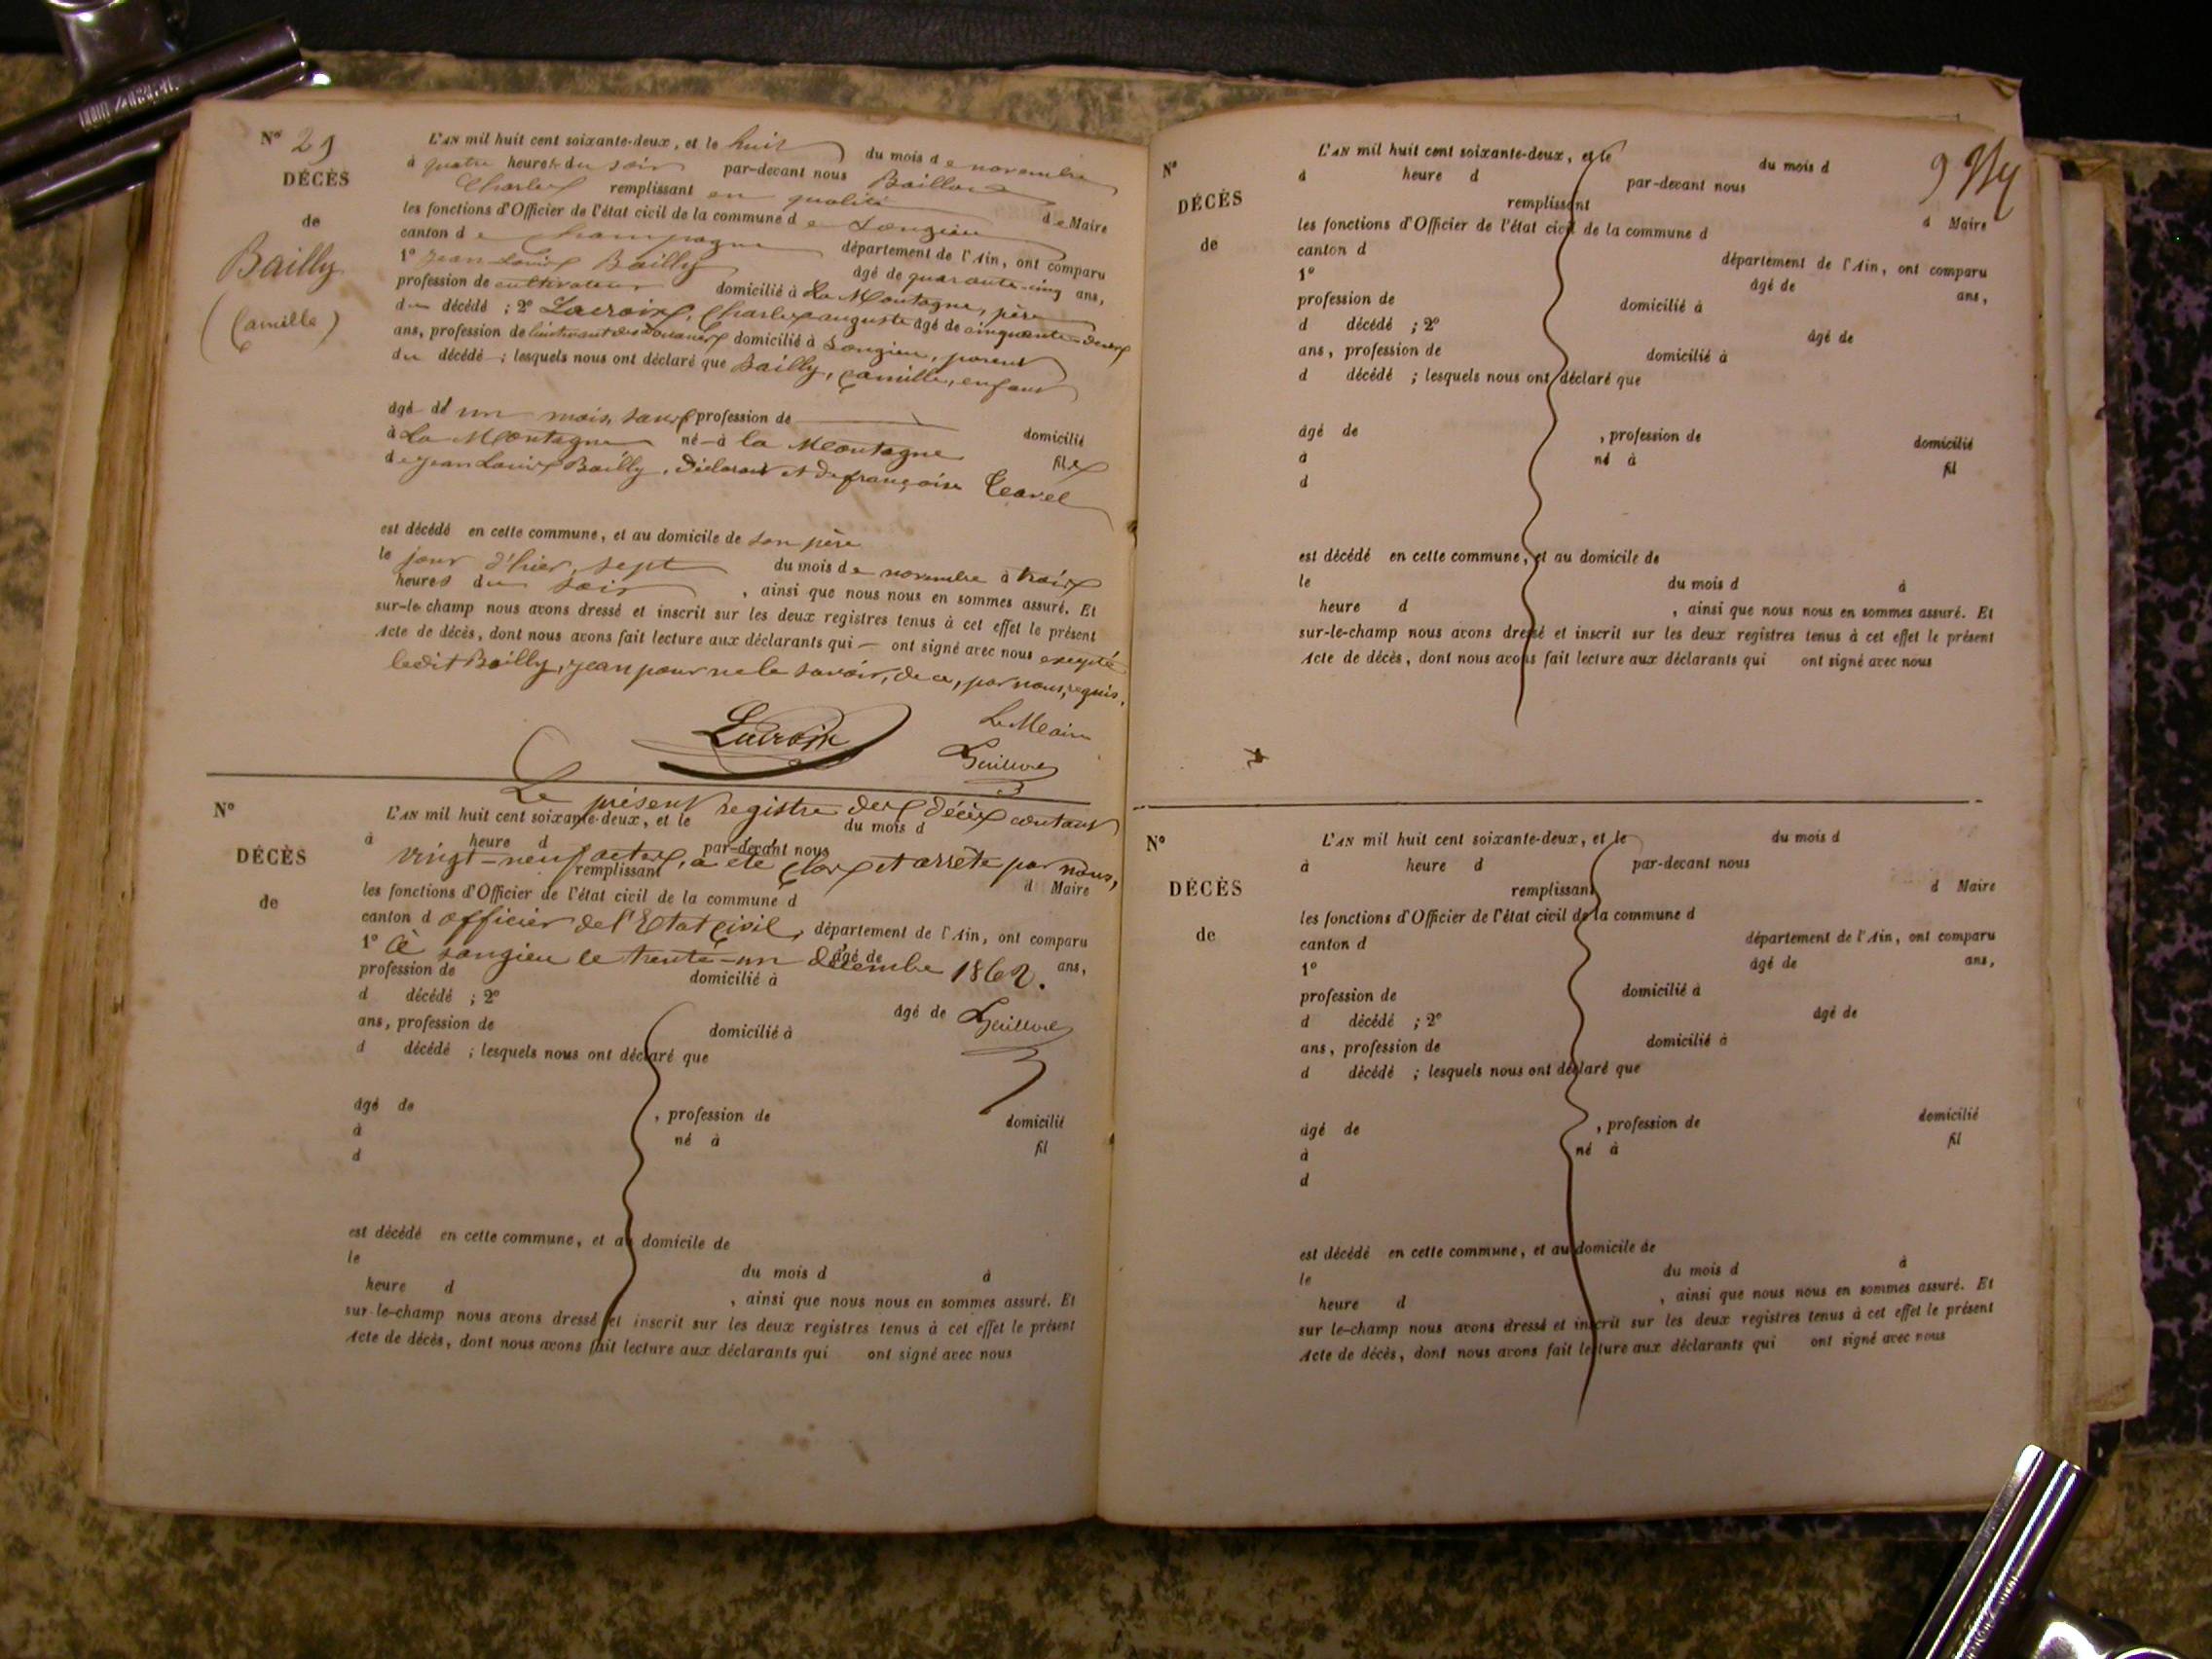 N° 29
DÉCÈS
de
Bailly
(Camille)
L'AN mil huit cent soixante-deux, et le huit du mois de novembre
à quatre heures du soir par-devant nous
Charles remplissant en qualité de Maire
les fonctions d'Officier de l'état civil de la commune de Songieu
canton de Champagne département de l'Ain, ont comparu
1° Jean Louis Bailly âgé de quarante-cinq ans,
profession de cultivateur domicilié à La Montagne, père
du décédé ; 2° Lacroix, Charles auguste âgé de cinquante-deux
ans, profession de lieutenant des Douanes domicilié à Songieu, parent
du décédé ; lesquels nous ont déclaré que Bailly, Camille, enfant
âgé de un mois, sans profession de domicilié
à La Montagne né à la Montagne fils
de Jean Louis Bailly, Déclarant et de françoise
est décédé en cette commune, et au domicile de son père
le jour d'hier, sept du mois de novembre à trois
heures du soir , ainsi que nous nous en sommes assuré. Et
sur-le-champ nous avons dressé et inscrit sur les deux registres tenus à cet effet le présent
Acte de décès, dont nous avons fait lecture aux déclarants qui — ont signé avec nous excepté
ledit Bailly, jean pour ne le savoir, de ce, par nous, requis.
Lacroix
Le Maire
N°
DÉCÈS
de
Le présent registre des décès contenant
L'AN mil huit cent soixante-deux, et le du mois d
à heure d par-devant nous
vingt-neuf actes, a été clos et arrêté par nous,
remplissant d Maire
les fonctions d'Officier de l'état civil de la commune d
canton d officier de l'Etat civil, département de l'Ain, ont comparu
1° à songieu le trente-un décembre 1862. âgé de ans,
profession de domicilié à
d décédé ; 2° âgé de
ans, profession de domicilié à
d décédé ; lesquels nous ont déclaré que
âgé de , profession de domicilié
à né à fil
d
est décédé en cette commune, et au domicile de
le du mois d à
heure d , ainsi que nous nous en sommes assuré. Et
sur-le-champ nous avons dressé et inscrit sur les deux registres tenus à cet effet le présent
Acte de décès, dont nous avons fait lecture aux déclarants qui ont signé avec nous
N°
DÉCÈS
de
L'AN mil huit cent soixante-deux, et le du mois d
à heure d par-devant nous
remplissant d Maire
les fonctions d'Officier de l'état civil de la commune d
canton d département de l'Ain, ont comparu
1° âgé de ans,
profession de domicilié à
d décédé ; 2° âgé de
ans, profession de domicilié à
d décédé ; lesquels nous ont déclaré que
âgé de , profession de domicilié
à né à fil
d
est décédé en cette commune, et au domicile de
le du mois d à
heure d , ainsi que nous nous en sommes assuré. Et
sur-le-champ nous avons dressé et inscrit sur les deux registres tenus à cet effet le présent
Acte de décès, dont nous avons fait lecture aux déclarants qui ont signé avec nous
N°
DÉCÈS
de
L'AN mil huit cent soixante-deux, et le du mois d
à heure d par-devant nous
remplissant d Maire
les fonctions d'Officier de l'état civil de la commune d
canton d département de l'Ain, ont comparu
1° âgé de ans,
profession de domicilié à
d décédé ; 2° âgé de
ans, profession de domicilié à
d décédé ; lesquels nous ont déclaré que
âgé de , profession de domicilié
à né à fil
d
est décédé en cette commune, et au domicile de
le du mois d à
heure d , ainsi que nous nous en sommes assuré. Et
sur le-champ nous avons dressé et inscrit sur les deux registres tenus à cet effet le présent
Acte de décès, dont nous avons fait lecture aux déclarants qui ont signé avec nous